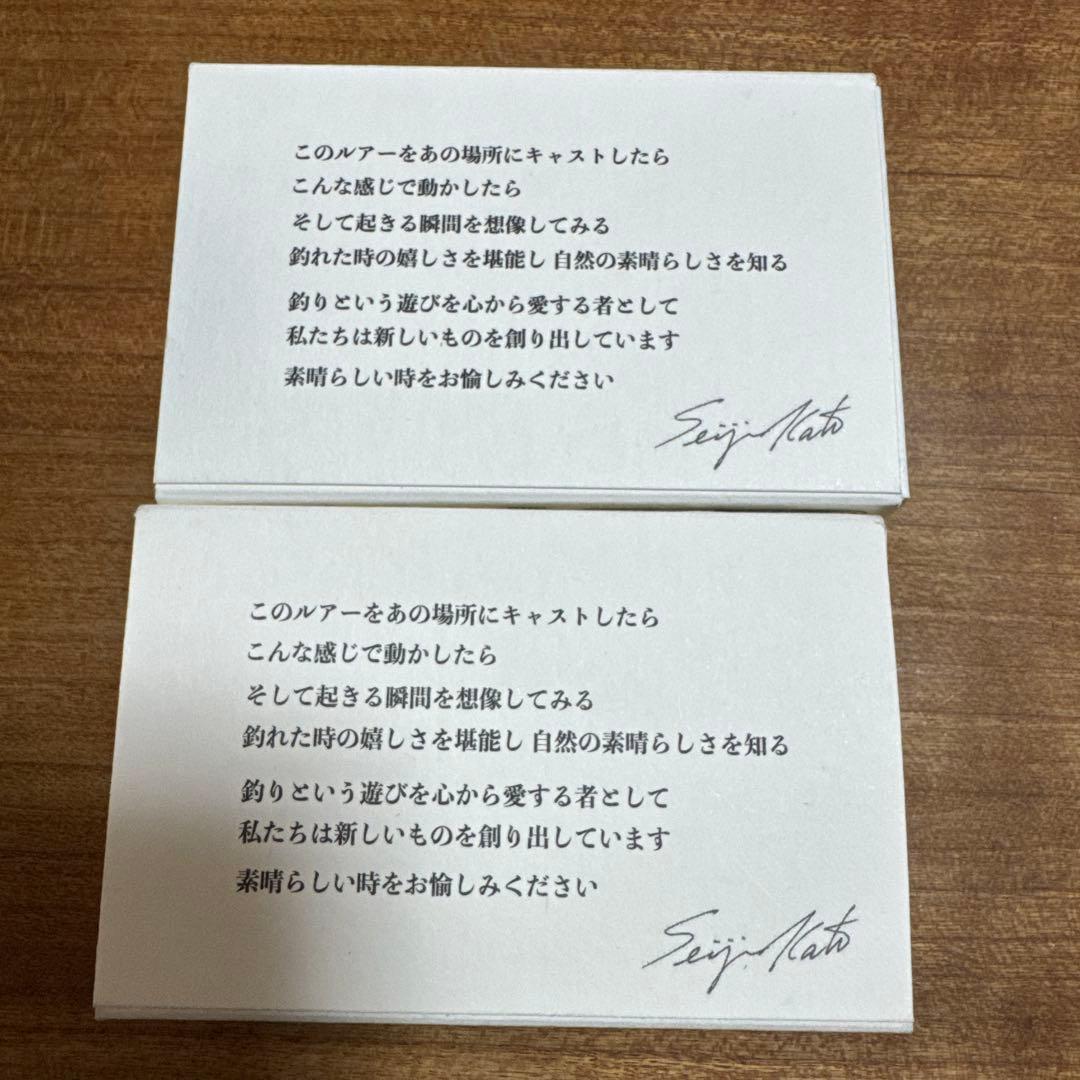 このルアーをあの場所にキャストしたら
こんな感じで動かしたら
そして起きる瞬間を想像してみる
釣れた時の嬉しさを堪能し 自然の素晴らしさを知る
釣りという遊びを心から愛する者として
私たちは新しいものを創り出しています
素晴らしい時をお愉しみください
Seiji Kato
このルアーをあの場所にキャストしたら
こんな感じで動かしたら
そして起きる瞬間を想像してみる
釣れた時の嬉しさを堪能し 自然の素晴らしさを知る
釣りという遊びを心から愛する者として
私たちは新しいものを創り出しています
素晴らしい時をお愉しみください
Seiji Kato